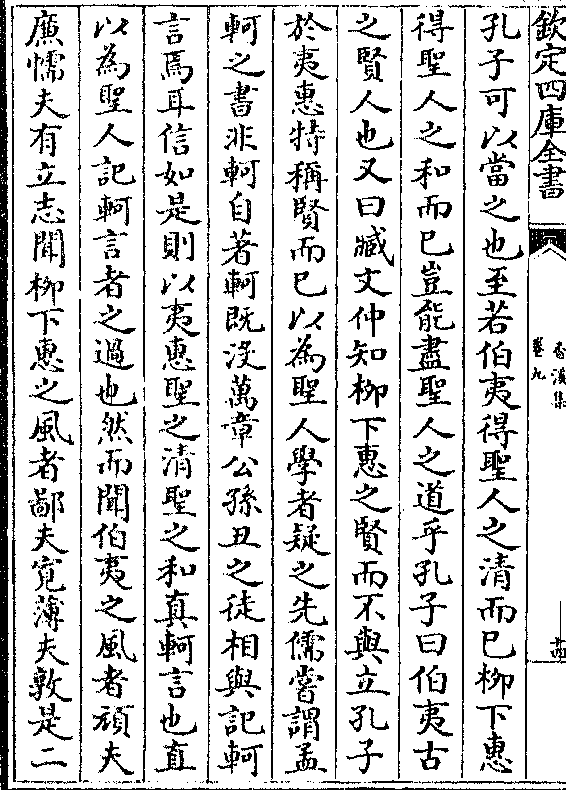 欽定四庫全書
香溪集
卷九
十四
孔子可以當之也至若伯夷得聖人之清而已柳下惠
得聖人之和而已豈能盡聖人之道乎孔子曰伯夷古
之賢人也又曰臧文仲知柳下惠之賢而不與立孔子
於夷惠特稱賢而已以為聖人學者疑之先儒嘗謂孟
軻之書非軻自著軻既沒萬章公孫丑之徒相與記軻
言焉耳信如是則以夷惠聖之清聖之和真軻言也直
以為聖人記軻言者之過也然而聞伯夷之風者頑夫
廉懦夫有立志聞柳下惠之風者鄙夫寛薄夫敦是二